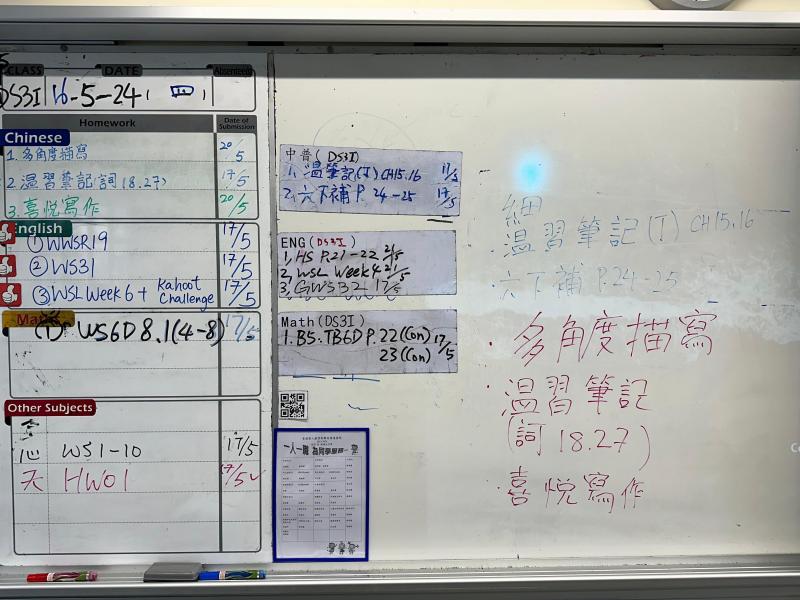 CLASS DATE Absentee(s)
DS3I 16-5-24 ( 四 )
Homework Date of Submission
Chinese
1. 多角度描寫 20/5
2. 温習筆記(詞18.27) 17/5
3. 喜悅寫作 20/5
English
① WWSR19 17/5
② WS31 17/5
③ WSL Week 6 + Kahoot Challenge 17/5
(1) WS6D 8.1(4-8) 17/5
Other Subjects
心 WS1-10 17/5
天 HW01 17/5
中普(DS3I)
1. 温筆記(T) CH15.16 17/5
2. 六下補 P.24-25 17/5
ENG (DS3I)
1, HS P.21-22 21/5
2, WSL Week 4 21/5
3, GWS32 17/5
Math (DS3I)
1. B5. TB6D P.22(Con) 17/5
23(Con)
一人一職 為同學服務
細
温習筆記(T) CH15.16
六下補 P.24-25
· 多角度描寫
· 温習筆記
(詞18.27)
· 喜悅寫作